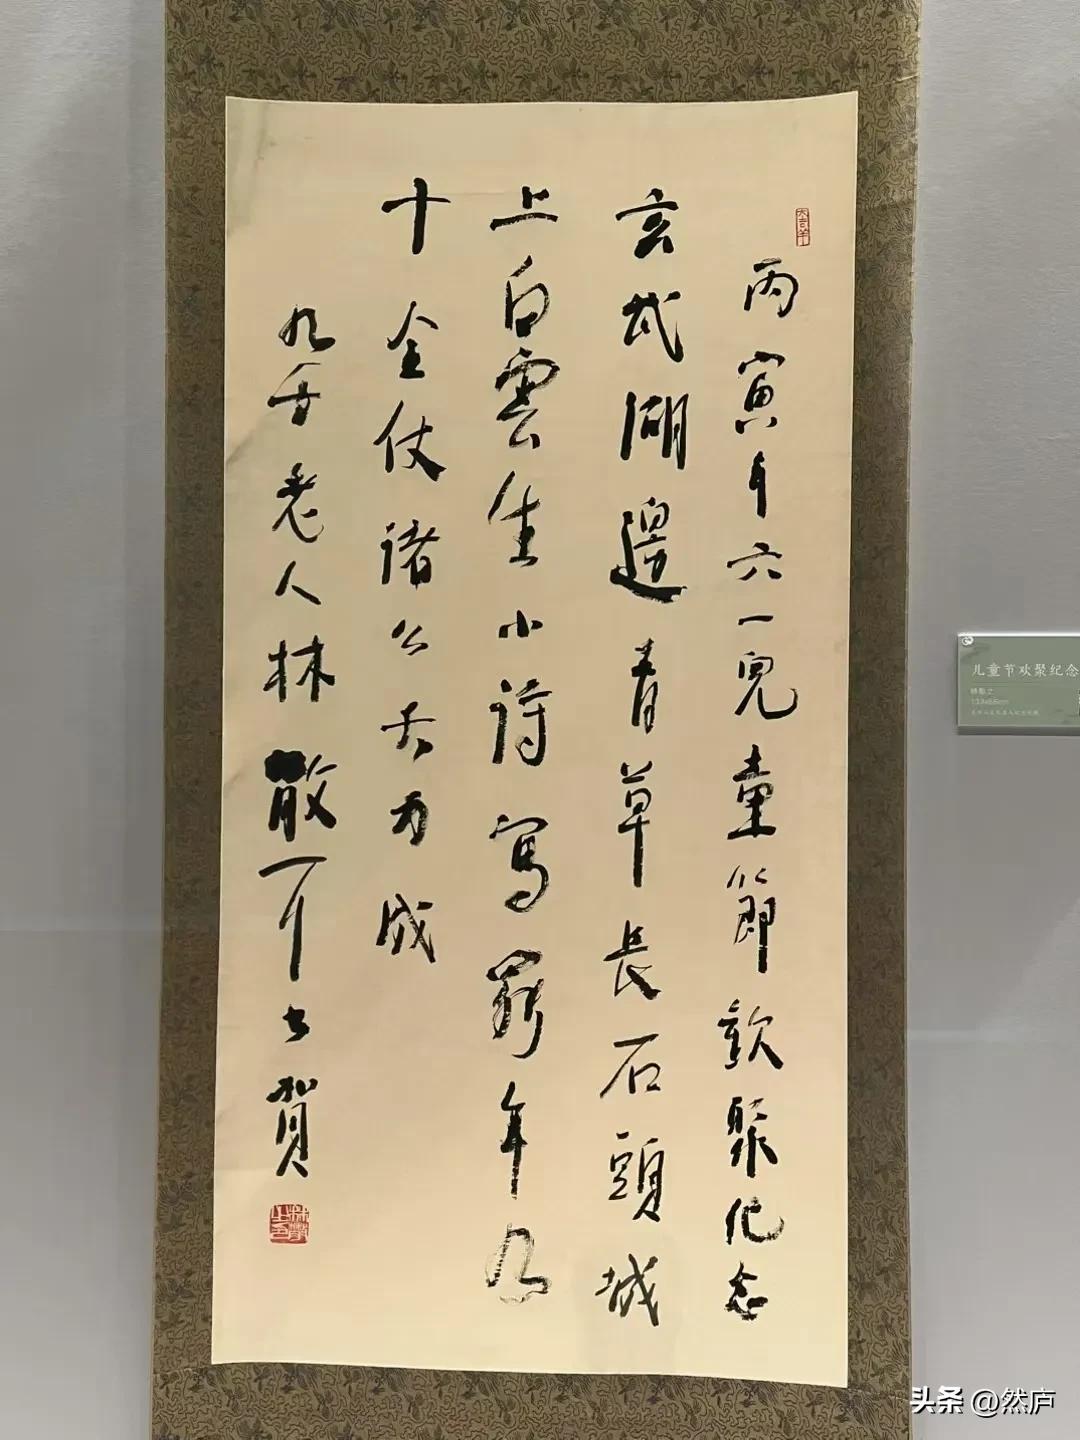 大吉羊
丙寅年六一兒童節歡聚紀念
玄武湖邊青草長石頭城
上白雲生小詩寫罷年九
十全仗諸公大力成
九 老人林散耳书賀
儿童节欢聚纪念
林散之
头条 @然庐